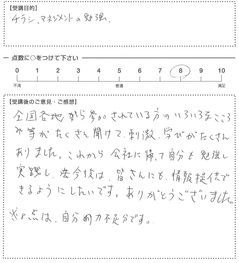 【受講目的】
チラシ、マネジメントの勉強。
点数に○をつけて下さい
0 1 2 3 4 5 6 7 8 9 10
不満 普通 満足
【受講後のご意見・ご感想】
全国各地から参加されている方のいろいろなこころ
み等がたくさん聞けて、刺激、学びがたくさん
ありました。これから会社に帰って自分も勉強し
実践し、今後は、皆さんにも、情報提供で
きるようにしたいです。ありがとうございました
点は、自分の力不足分です。